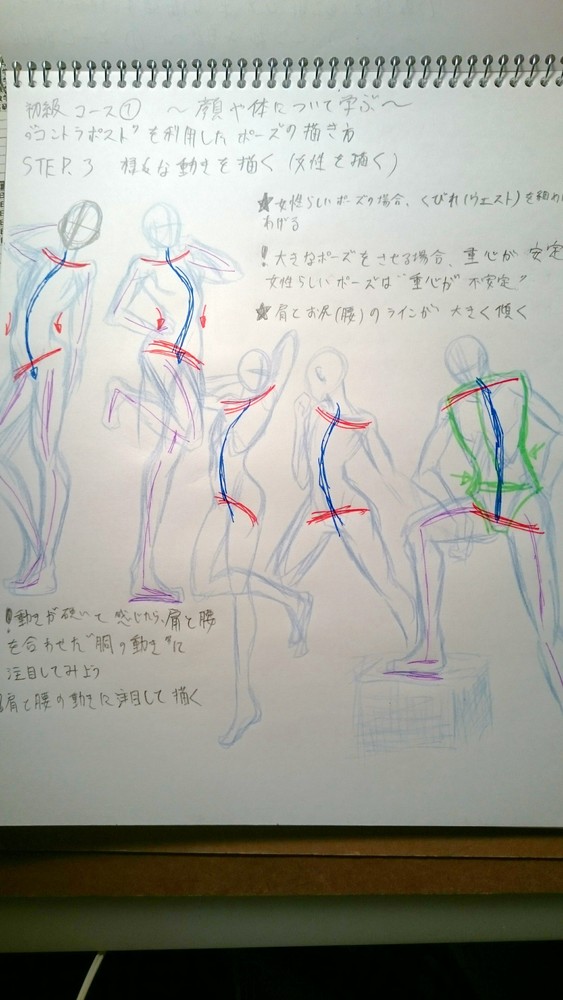 初級 コース① ～顔や体について学ぶ～
"コントラポスト"を利用したポーズの描き方
STEP.3 様々な動きを描く(女性を描く)
★女性らしいポーズの場合、くびれ(ウエスト)を細め
あげる
! 大きなポーズをさせる場合、重心が 安定
女性らしいポーズは"重心が 不安定"
★肩とお尻(腰)のラインが 大きく傾く
!動きが硬いて 感じたら、肩と腰
を合わせた"胴の動き"に
注目してみよう
肩と腰の動きに注目して描く